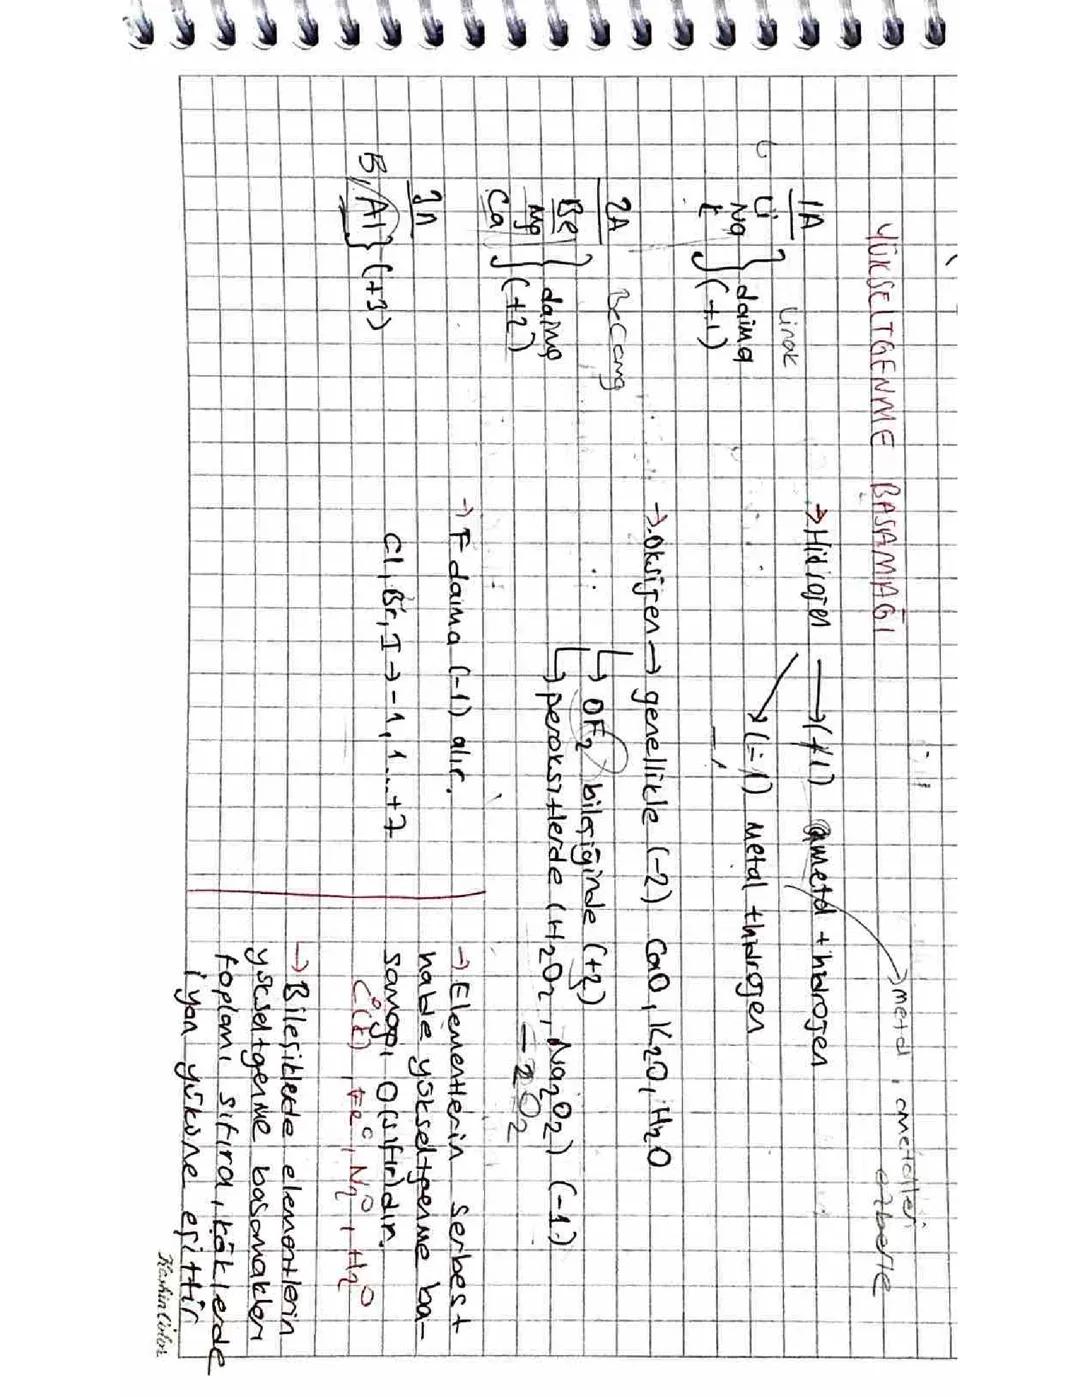 YÜKSELTGENME BASAMAĞI
1A
Li
Na
K
} daima
(+1)
Linak
2A
Be
Mg
Ca
} daima
(+2)
BeCamg
3A
B, Al } (+3)
→ Hidrojen → (+1) ametal + hidrojen
→ (-1) metal + hidrojen
→ metal, ametalleri
ezberle
→ Oksijen → genellikle (-2) CaO, K2O, H2O
→ OF2 bileşiğinde (+2)
→ peroksitlerde (H2O2, Na2O2) (-1)
-2 O2
→ F daima (-1) alır.
Cl, Br, I → -1, 1...+7
→ Elementlerin serbest
halde yükseltgenme ba-
samağı 0(sıfır)dır.
C⁰(k), Fe⁰, N2⁰, H2⁰
→ Bileşiklerde elementlerin
yükseltgenme basamakları
toplamı sıfıra, köklerde
iyon yüküne eşittir